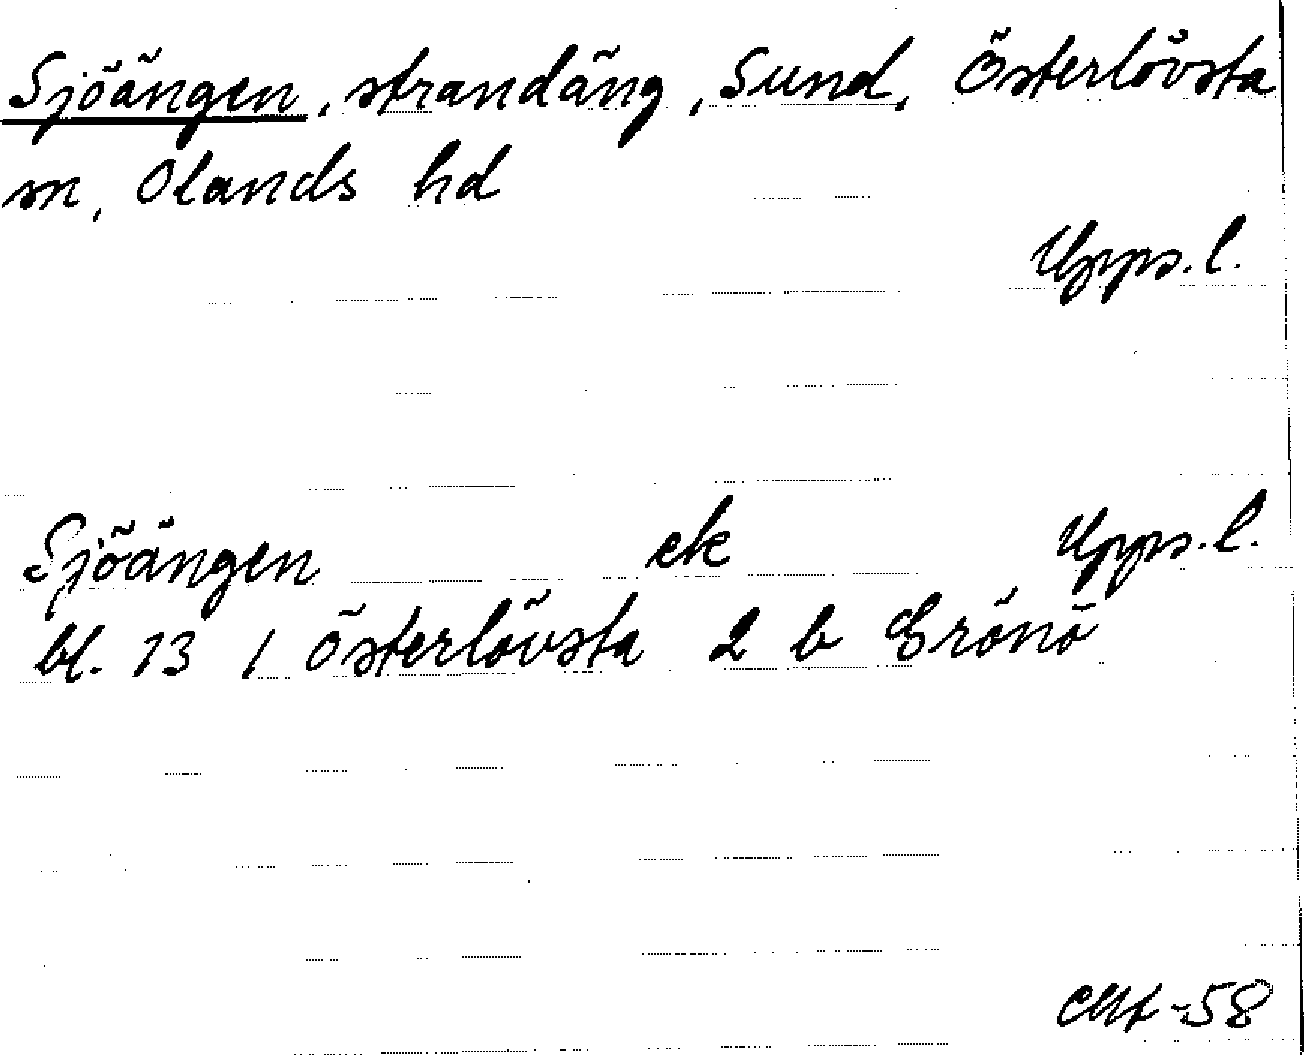 Sjöängen, strandäng, Sund, Österlövsta
sn, Olands hd
Upps. l.
Sjöängen ek Upps. l.
bl. 13 1 Österlövsta 2 b Grönö
-58